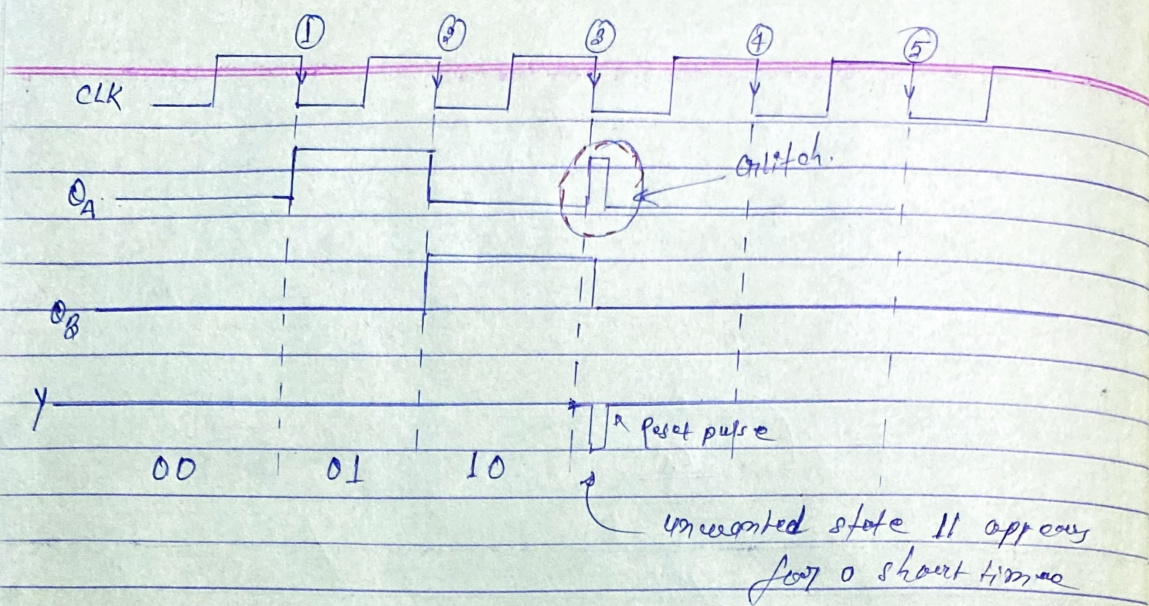 ① ② ③ ④ ⑤
CLK
Glitch.
Q_A
Q_B
Y
Reset pulse
00 01 10
unwanted state 11 appears
for a short time